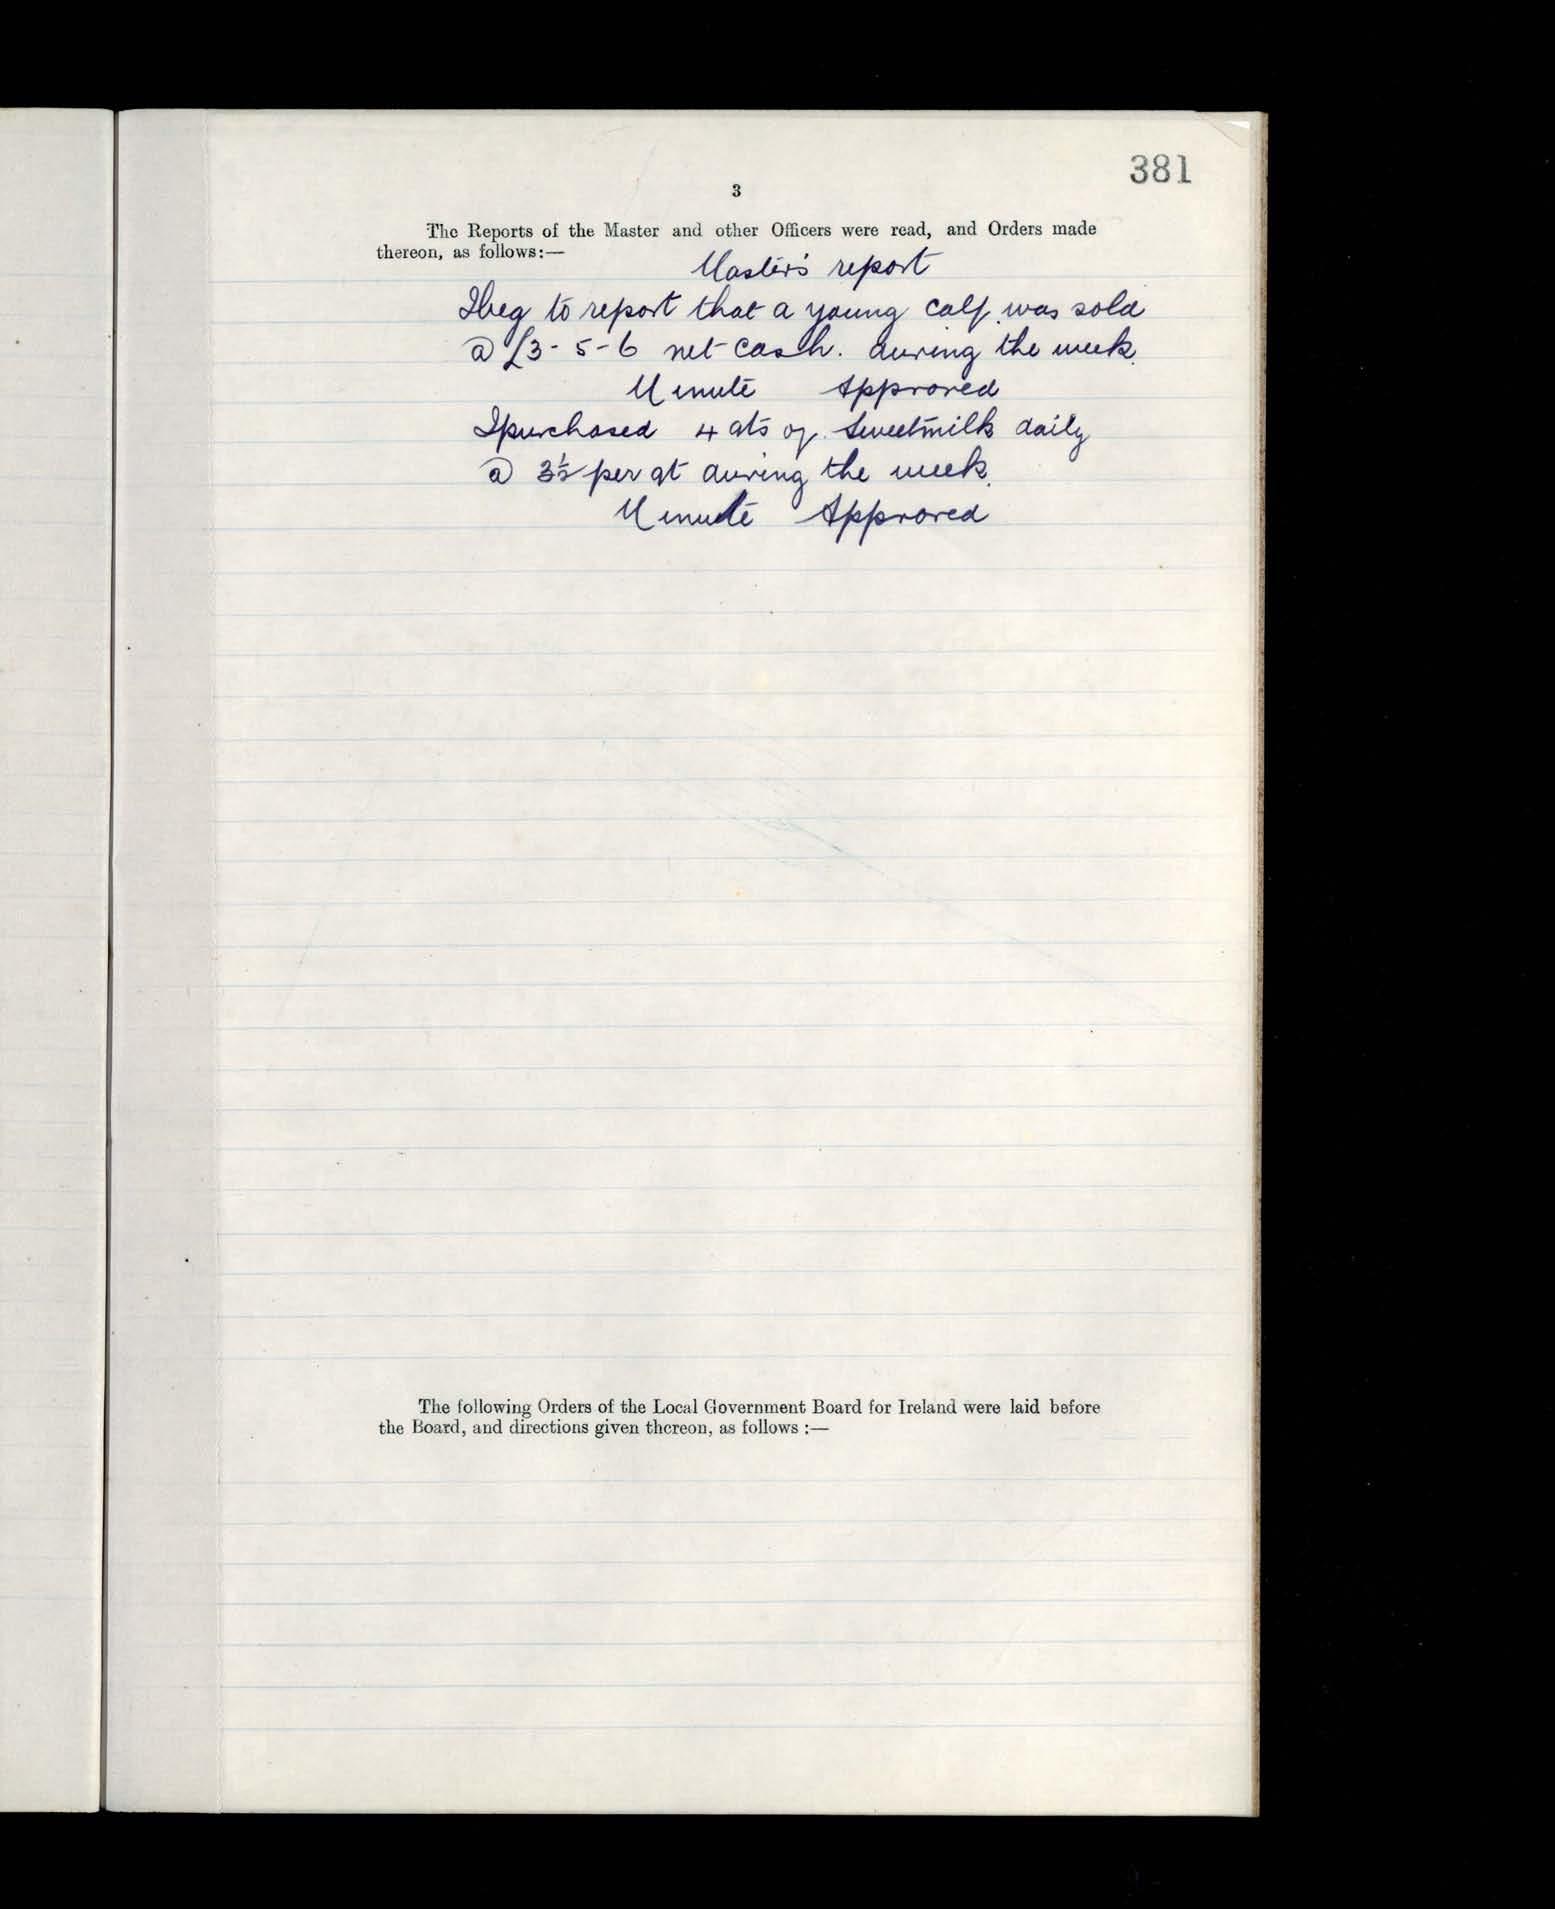 381
3
The Reports of the Master and other Officers were read, and Orders made
thereon, as follows:—
Master's report
I beg to report that a young calf was sold
@ £3-5-6 net cash. during the week.
Minute Approved
I purchased 4 qts of Sweetmilk daily
@ 3½ per qt during the week.
Minute Approved
The following Orders of the Local Government Board for Ireland were laid before
the Board, and directions given thereon, as follows :—